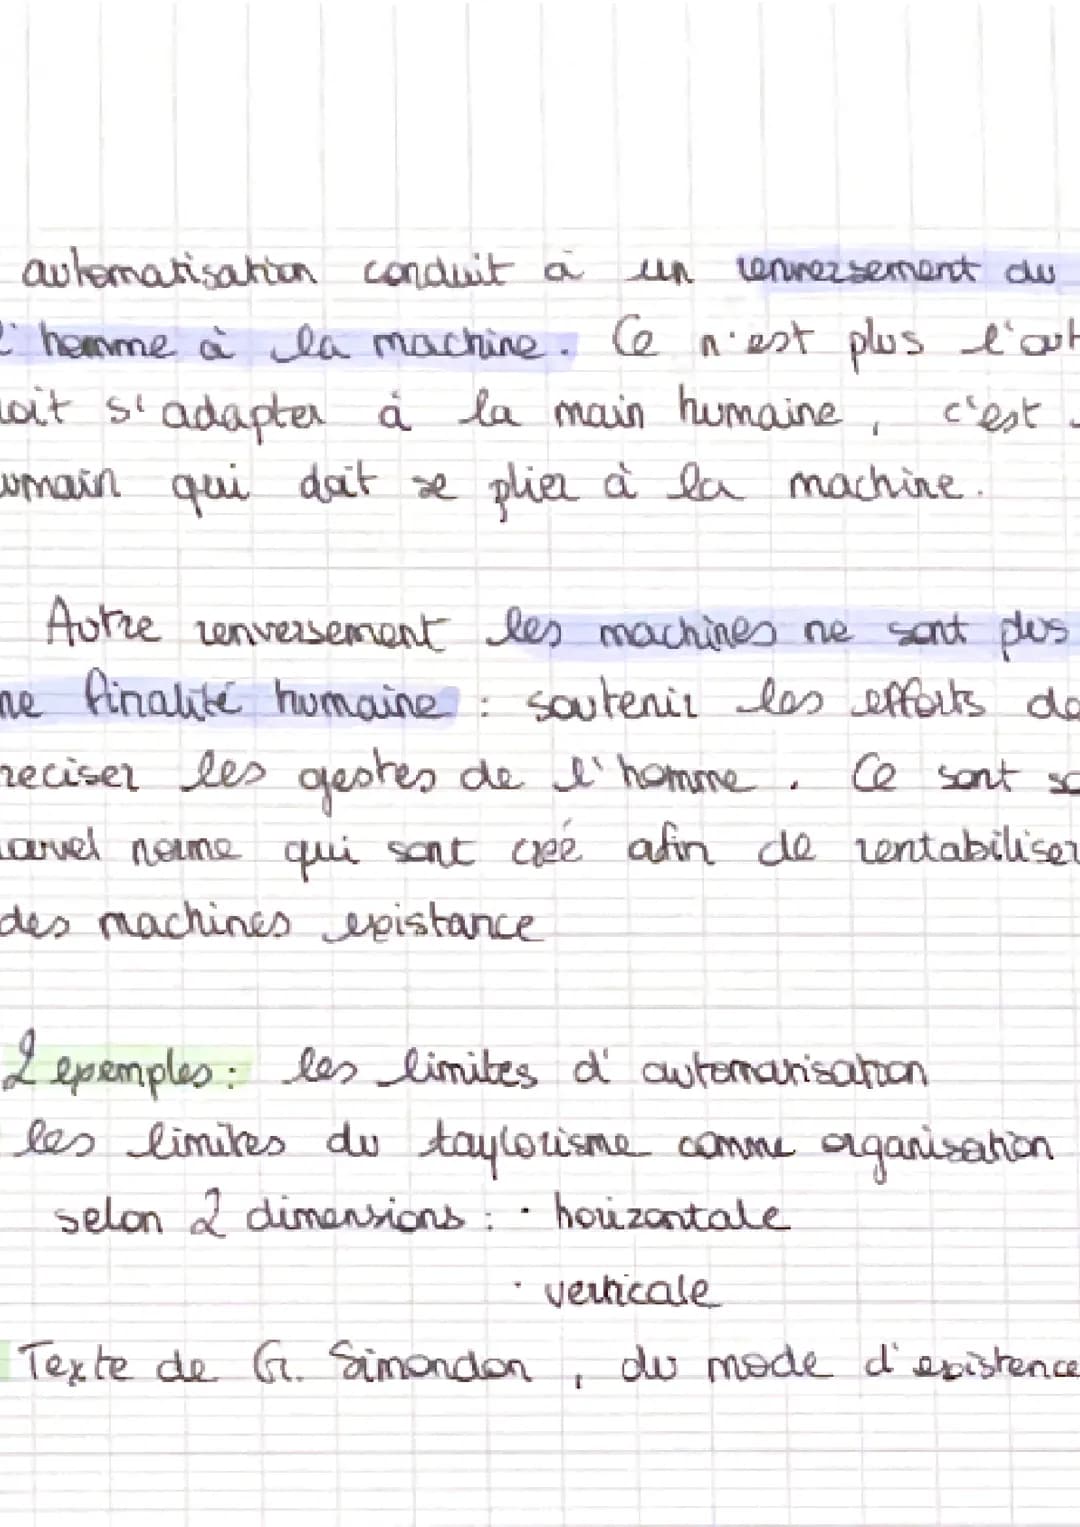 automatisation conduit à un renversement du
l'homme à la machine. Ce n'est plus l'out
doit s'adapter à la main humaine, c'est
umain qui doit se plier à la machine.
Autre renversement les machines ne sont plus
ne finalité humaine : soutenir les efforts de
reciser les gestes de l'homme. Ce sont
nouvel norme qui sont creé afin de rentabiliser
des machines existance
2 exemples : les limites d'automatisation
les limites du taylorisme comme organisation
selon 2 dimensions : · horizontale
· verticale
Texte de G. Simondon, du mode d'existence